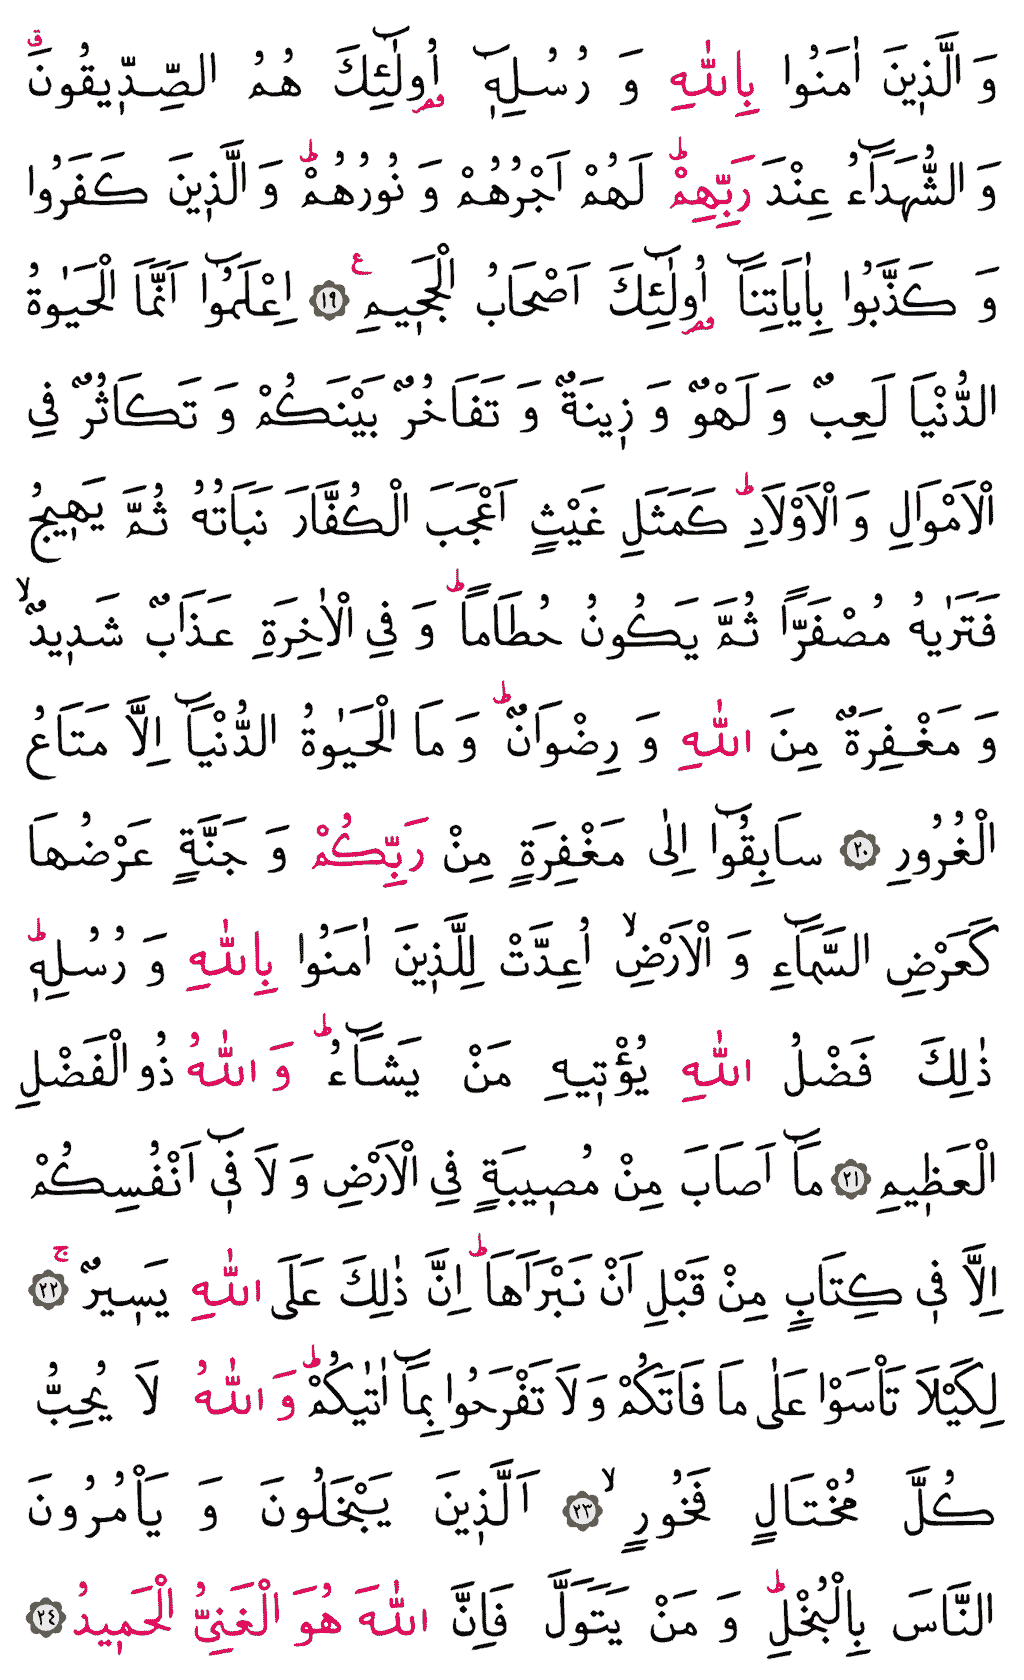 وَ الَّذٖينَ اٰمَنُوا بِاللّٰهِ وَ رُسُلِهٖٓ اُولٰٓئِكَ هُمُ الصِّدّٖيقُونَۗ
وَ الشُّهَدَٓاءُ عِنْدَ رَبِّهِمْؕ لَهُمْ اَجْرُهُمْ وَ نُورُهُمْؕ وَ الَّذٖينَ كَفَرُوا
وَ كَذَّبُوا بِاٰيَاتِنَٓا اُولٰٓئِكَ اَصْحَابُ الْجَحٖيمِ ع ﴿١٩﴾ اِعْلَمُٓوا اَنَّمَا الْحَيٰوةُ
الدُّنْيَا لَعِبٌ وَ لَهْوٌ وَ زٖينَةٌ وَ تَفَاخُرٌ بَيْنَكُمْ وَ تَكَاثُرٌ فِي
الْاَمْوَالِ وَ الْاَوْلَادِؕ كَمَثَلِ غَيْثٍ اَعْجَبَ الْكُفَّارَ نَبَاتُهُ ثُمَّ يَهٖيجُ
فَتَرٰيهُ مُصْفَرًّا ثُمَّ يَكُونُ حُطَامًاؕ وَ فِي الْاٰخِرَةِ عَذَابٌ شَدٖيدٌۙ
وَ مَغْفِرَةٌ مِنَ اللّٰهِ وَ رِضْوَانٌؕ وَ مَا الْحَيٰوةُ الدُّنْيَٓا اِلَّا مَتَاعُ
الْغُرُورِ ﴿٢٠﴾ سَابِقُٓوا اِلٰى مَغْفِرَةٍ مِنْ رَبِّكُمْ وَ جَنَّةٍ عَرْضُهَا
كَعَرْضِ السَّمَٓاءِ وَ الْاَرْضِۙ اُعِدَّتْ لِلَّذٖينَ اٰمَنُوا بِاللّٰهِ وَ رُسُلِهٖؕ
ذٰلِكَ فَضْلُ اللّٰهِ يُؤْتٖيهِ مَنْ يَشَٓاءُؕ وَ اللّٰهُ ذُو الْفَضْلِ
الْعَظٖيمِ ﴿٢١﴾ مَٓا اَصَابَ مِنْ مُصٖيبَةٍ فِي الْاَرْضِ وَ لَا فٖٓي اَنْفُسِكُمْ
اِلَّا فٖي كِتَابٍ مِنْ قَبْلِ اَنْ نَبْرَاَهَاؕ اِنَّ ذٰلِكَ عَلَى اللّٰهِ يَسٖيرٌۚ ﴿٢٢﴾
لِكَيْلَا تَأْسَوْا عَلٰى مَا فَاتَكُمْ وَ لَا تَفْرَحُوا بِمَٓا اٰتٰيكُمْؕ وَ اللّٰهُ لَا يُحِبُّ
كُلَّ مُخْتَالٍ فَخُورٍۙ ﴿٢٣﴾ اَلَّذٖينَ يَبْخَلُونَ وَ يَأْمُرُونَ
النَّاسَ بِالْبُخْلِؕ وَ مَنْ يَتَوَلَّ فَاِنَّ اللّٰهَ هُوَ الْغَنِيُّ الْحَمٖيدُ ﴿٢٤﴾